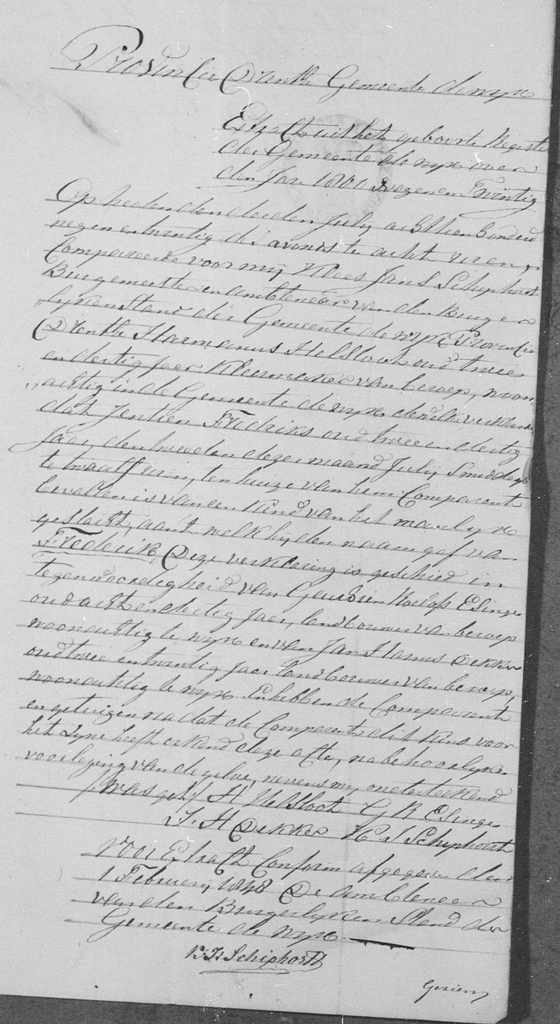 Provincie Drenthe Gemeente de wyk
Extract uit het geboorte Register
der Gemeente de wyk over
den Jare 1800 Negen en Twintig
Op heden den derden July achttien honderd
negen en twintig des avonds te acht uren,
Compareerde voor my Klaas Jans Schiphorst
Burgemeester en ambtenaar van den Burger
lyken stand der Gemeente de wyk Provincie
Drenthe Harmannus Helsloot oud twee
en dertig jaar Kleermaker van beroep, woon
achtig in de Gemeente de wyk dewelke verklaard
dat Jentien Fredriks oud twee en dertig
Jaar, den tweeden dezer maand July smiddags
te twaalf uren, ten huize van hem Comparant
bevallen is van een Kind van het manlyke
geslacht, aant welk hy den naam gaf van
Frederik, Deze verklaring is geschied in
tegenwoordigheid van Roelofs Elinge
oud acht en dertig jaar, landbouwer van beroep
woonachtig te wyk en van Jan Harms Dekker
oud twee en twintig jaar landbouwer van beroep,
woonachtig te wyk. En hebben de Comparant
en getuigen na dat de Comparant dit Kind voor
het zyne heeft erkend deze acte, na behoorlyke
voorlezing van dezelve, nevens my onderteekend
was get. H Helsloot G R Elinge
J H Dekker K J Schiphorst
Voor Extract Conform afgegeven den
1 February 1848 De ambtenaar
van den Burgerlyken Stand der
Gemeente de wyk
Schiphorst